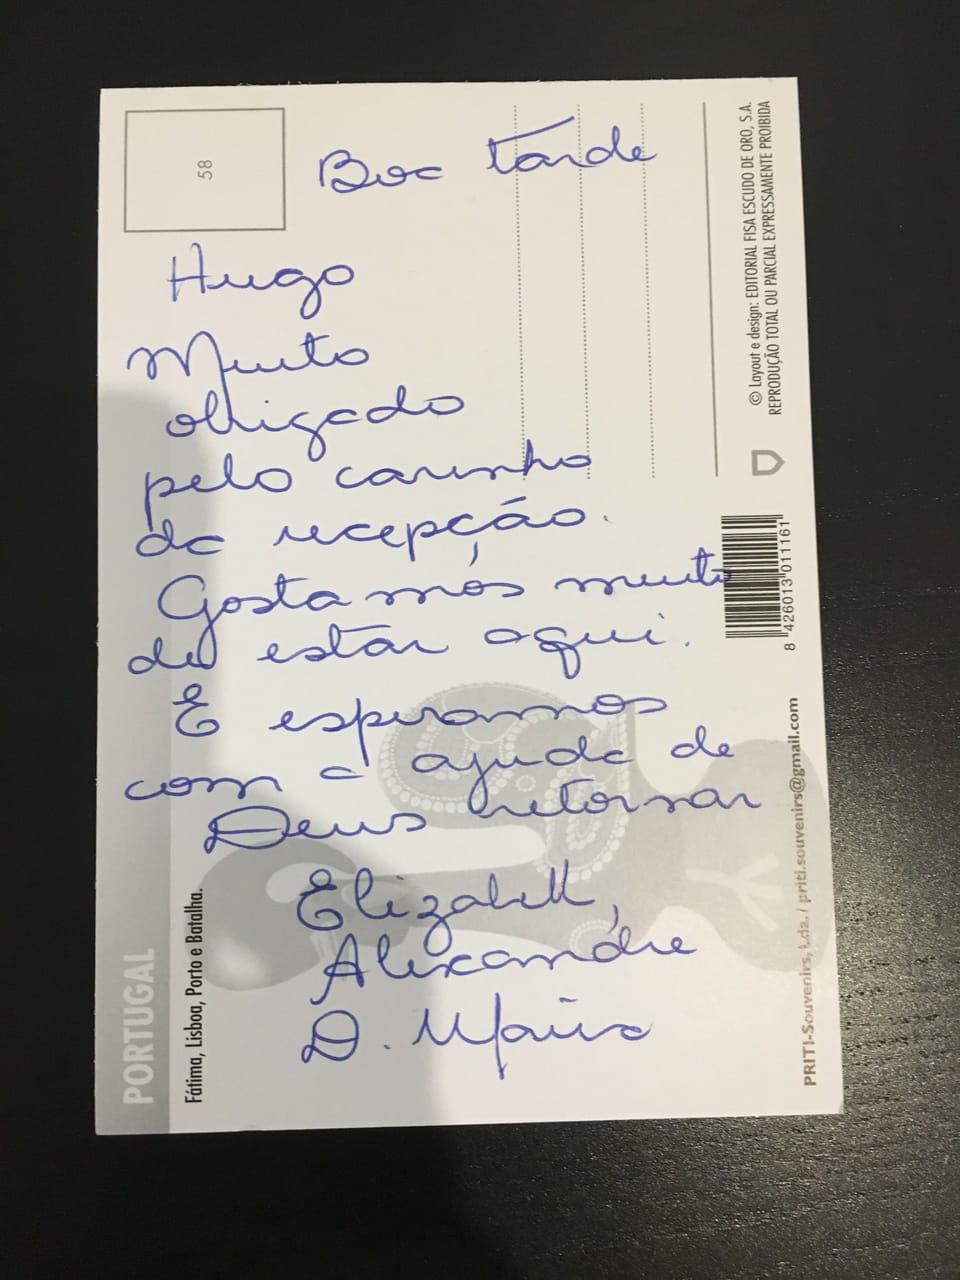 Boa tarde
Hugo
Muito
obrigado
pelo carinho
da recepção.
Gostamos muito
de estar aqui.
E esperamos
com a ajuda de
Deus retornar
Elizabeth,
Alexandre
D. Maria
58
© Layout e design: EDITORIAL FISA ESCUDO DE ORO, S.A.
REPRODUÇÃO TOTAL OU PARCIAL EXPRESSAMENTE PROIBIDA
8 426013 011161
PRITI-Souvenirs, Lda. / priti.souvenirs@gmail.com
PORTUGAL
Fátima, Lisboa, Porto e Batalha.